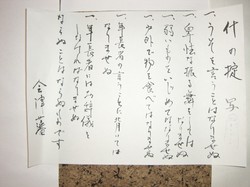 什の掟
一、うそを言うことはなりませぬ
一、卑怯な振る舞をしてはなりませぬ
一、弱いものをいじめてはなりませぬ
一、戸外で物を食べてはなりませぬ
一、年長者の言うことに背いては
なりませぬ
一、年長者にはお辞儀を
しなければなりませぬ
ならぬことはならぬものです
会津藩